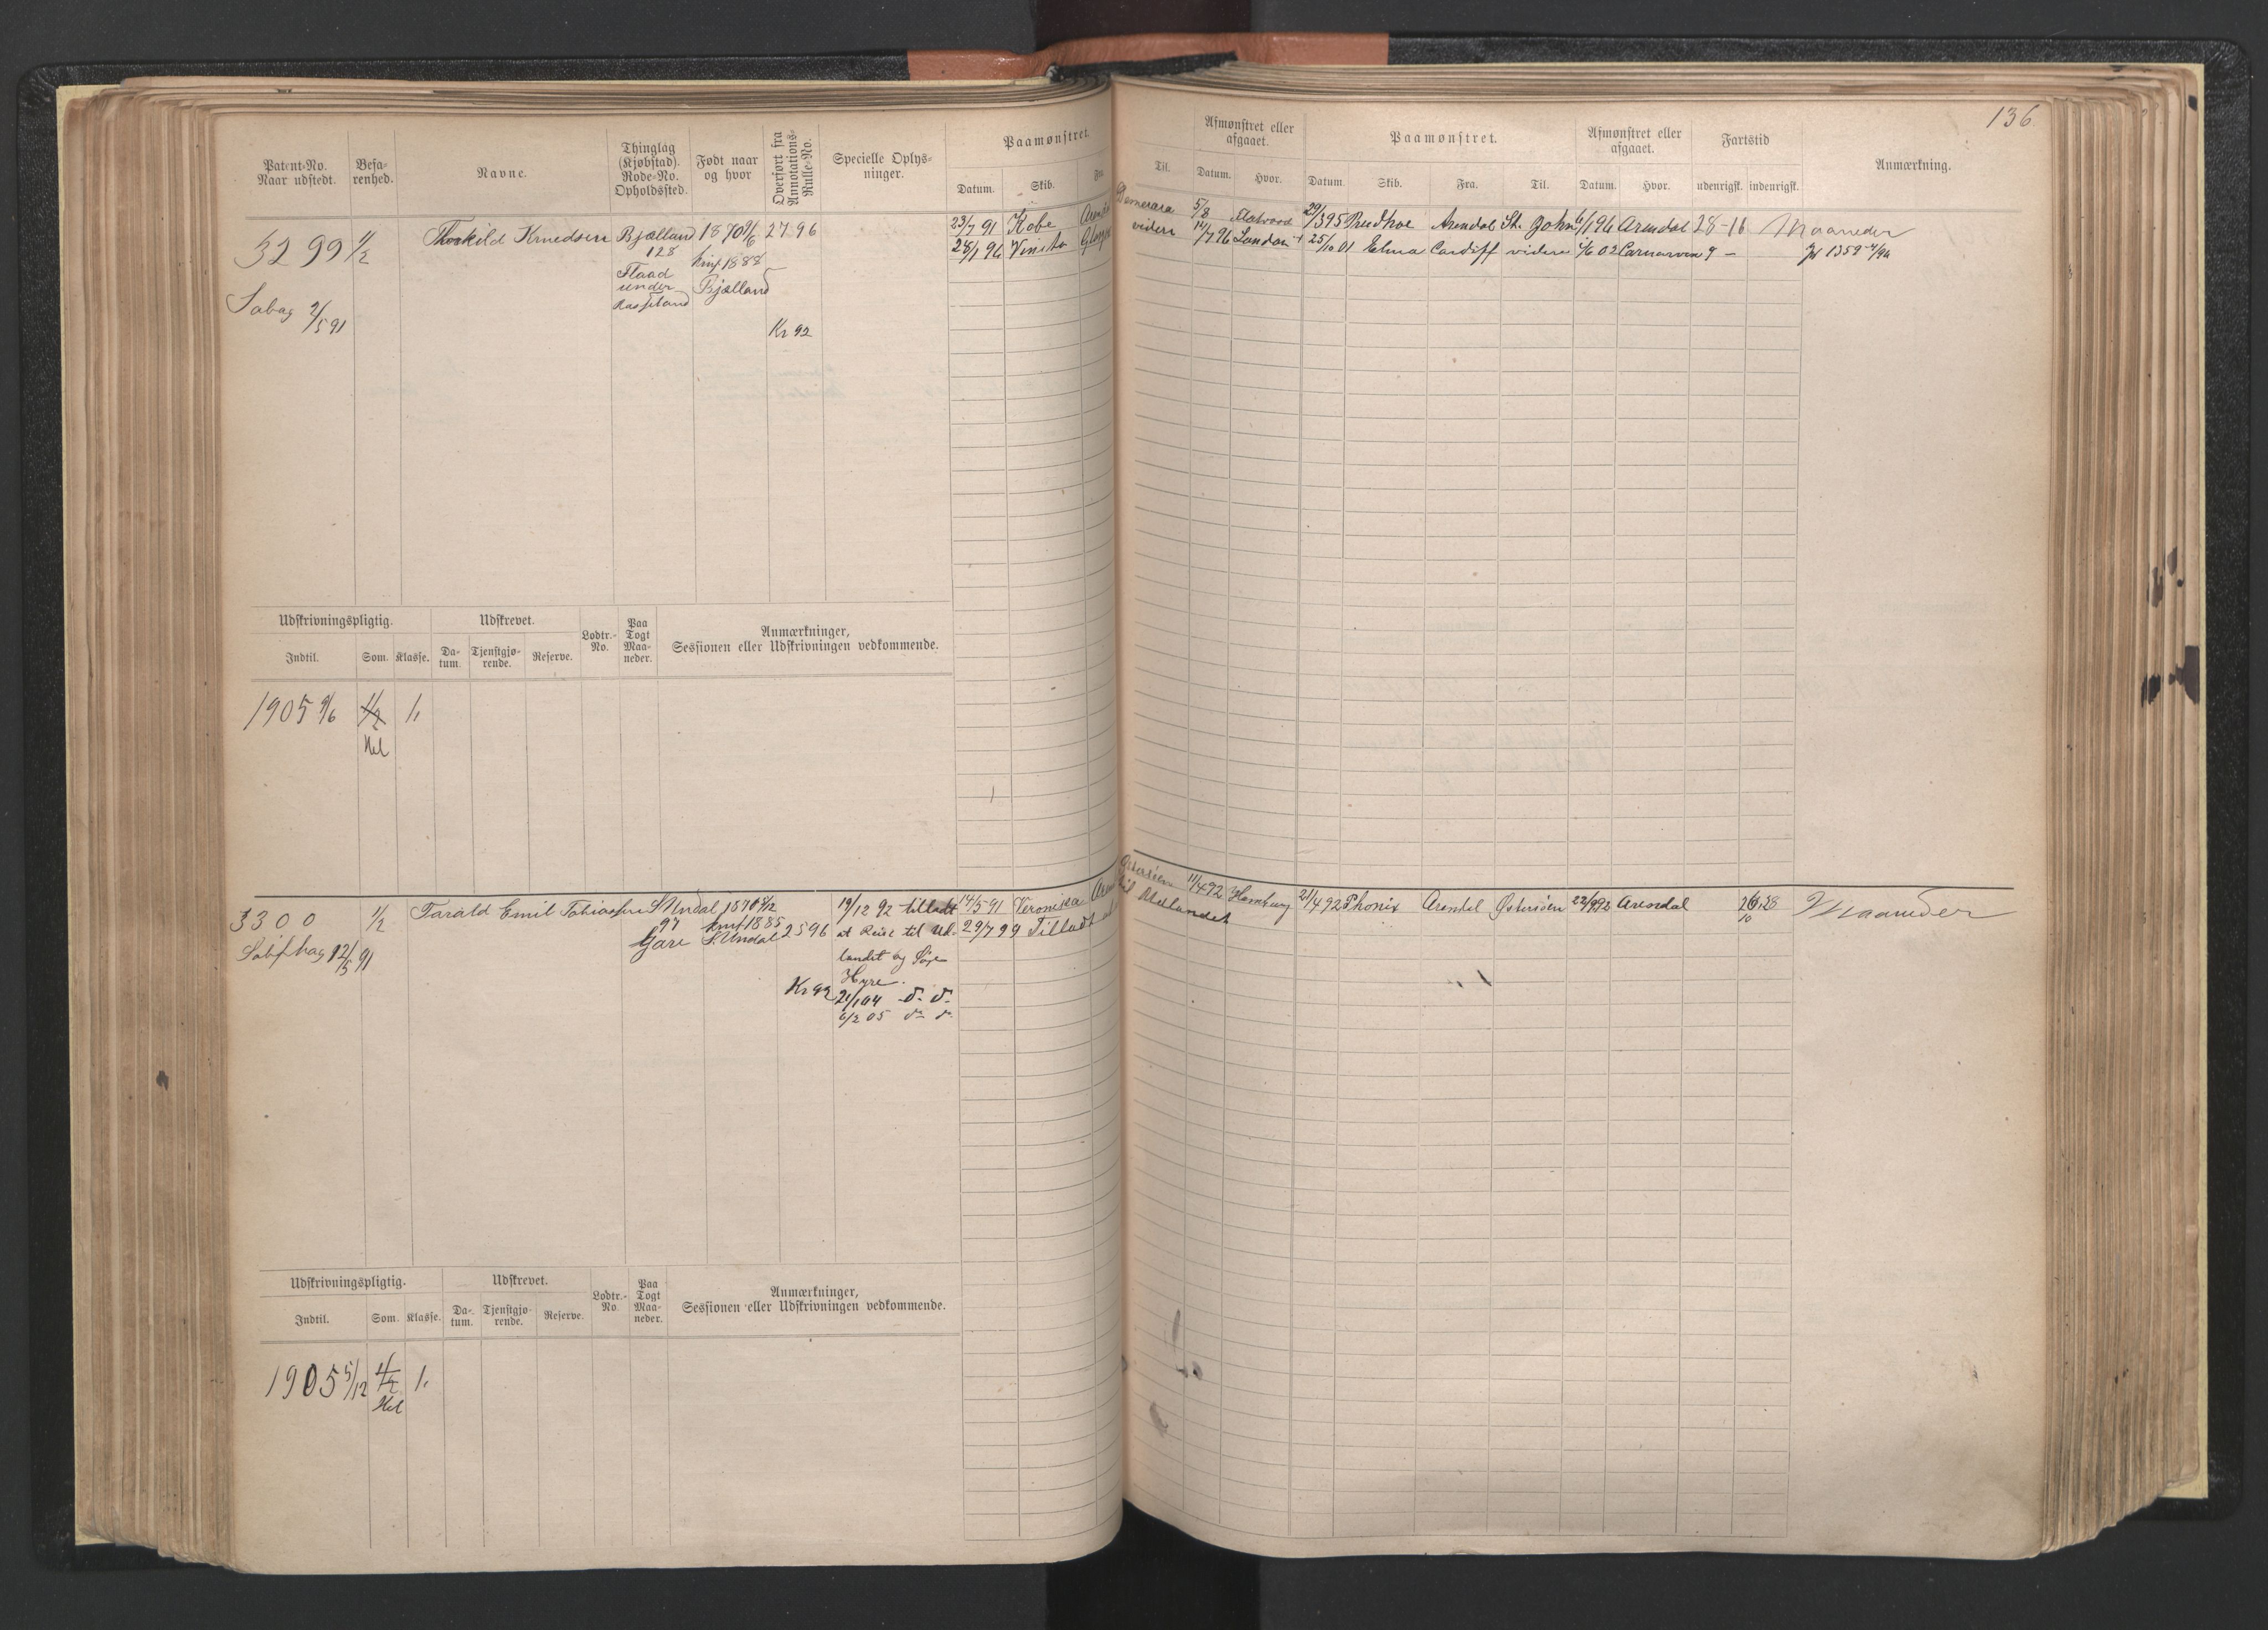 136
Patent-No. Naar udstedt.
Befa-renhed.
Navne.
Thinglag (Kjøbstad). Rode-No. Opholdssted.
Født naar og hvor
Overført fra Annotations-Rulle-No.
Specielle Oplys-ninger.
Paamønstret.
Datum. Skib. Fra
Til.
Afmønstret eller afgaaet.
Datum. Hvor.
Paamønstret.
Datum. Skib. Fra. Til.
Afmønstret eller afgaaet.
Datum. Hvor.
Fartstid
udenrigsk. indenrigsk.
Anmærkning.
3299 1/2 Thorkild Knudsen Bjælland 1870 9/6 2796
128 kmf 1888
Flaad Bjælland
under
Kr 92
23/7 91 Kobe Demerara 5/8 29/3 95 Prudhoe Arendal St. John 6/1 96 Arendal 28-16 Maaneder
28/1 96 videre 14/7 96 London 25/10 01 Elma Cardiff videre 4/6 02 Carnarvon 9 -
Udskrivningspligtig.
Indtil. Som. Klasse.
Udskrevet.
Da-tum. Tjenstgjø-rende. Reserve.
Lodtr.-No.
Paa Togt Maa-neder.
Anmærkninger,
Sessionen eller Udskrivningen vedkommende.
1905 9/6 1/2 1.
Hel
3300 1/2 Tarald Emil Tobiassen S Undal 1870 5/12
97 kmf 1885
Gare S. Undal 2596
12/5 91
Kr 92
19/12 92 tilladt
at Reise til Ud-
landet og Søge
Hyre.
21/1 04 do do
6/2 05 do do
14/5 91 Veronika Østersøen 11/4 92 Hamburg 21/4 92 Phonix Arendal Østersøen 22/9 92 Arendal Maaneder
29/7 99 Tilladt til Udlandet
Udskrivningspligtig.
Indtil. Som. Klasse.
Udskrevet.
Da-tum. Tjenstgjø-rende. Reserve.
Lodtr.-No
Paa Togt Maa-neder.
Anmærkninger,
Sessionen eller Udskrivningen vedkommende.
1905 5/12 1/2 1.
Hel